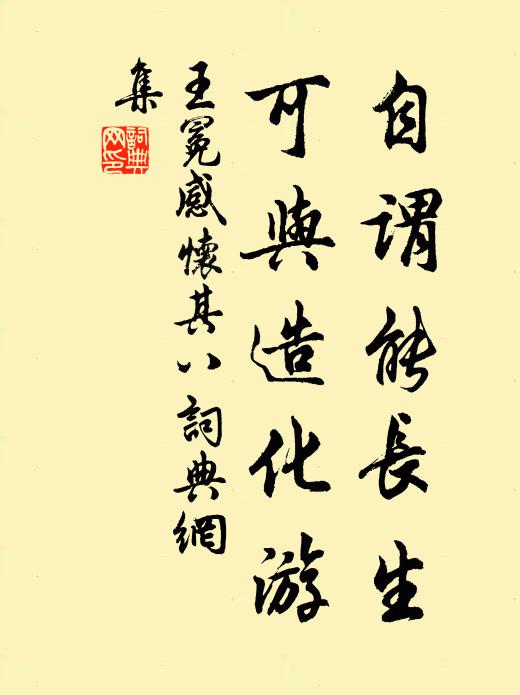 自谓能長生
可與造化游
王冕感懷其八詞典網
集
詞典
网印